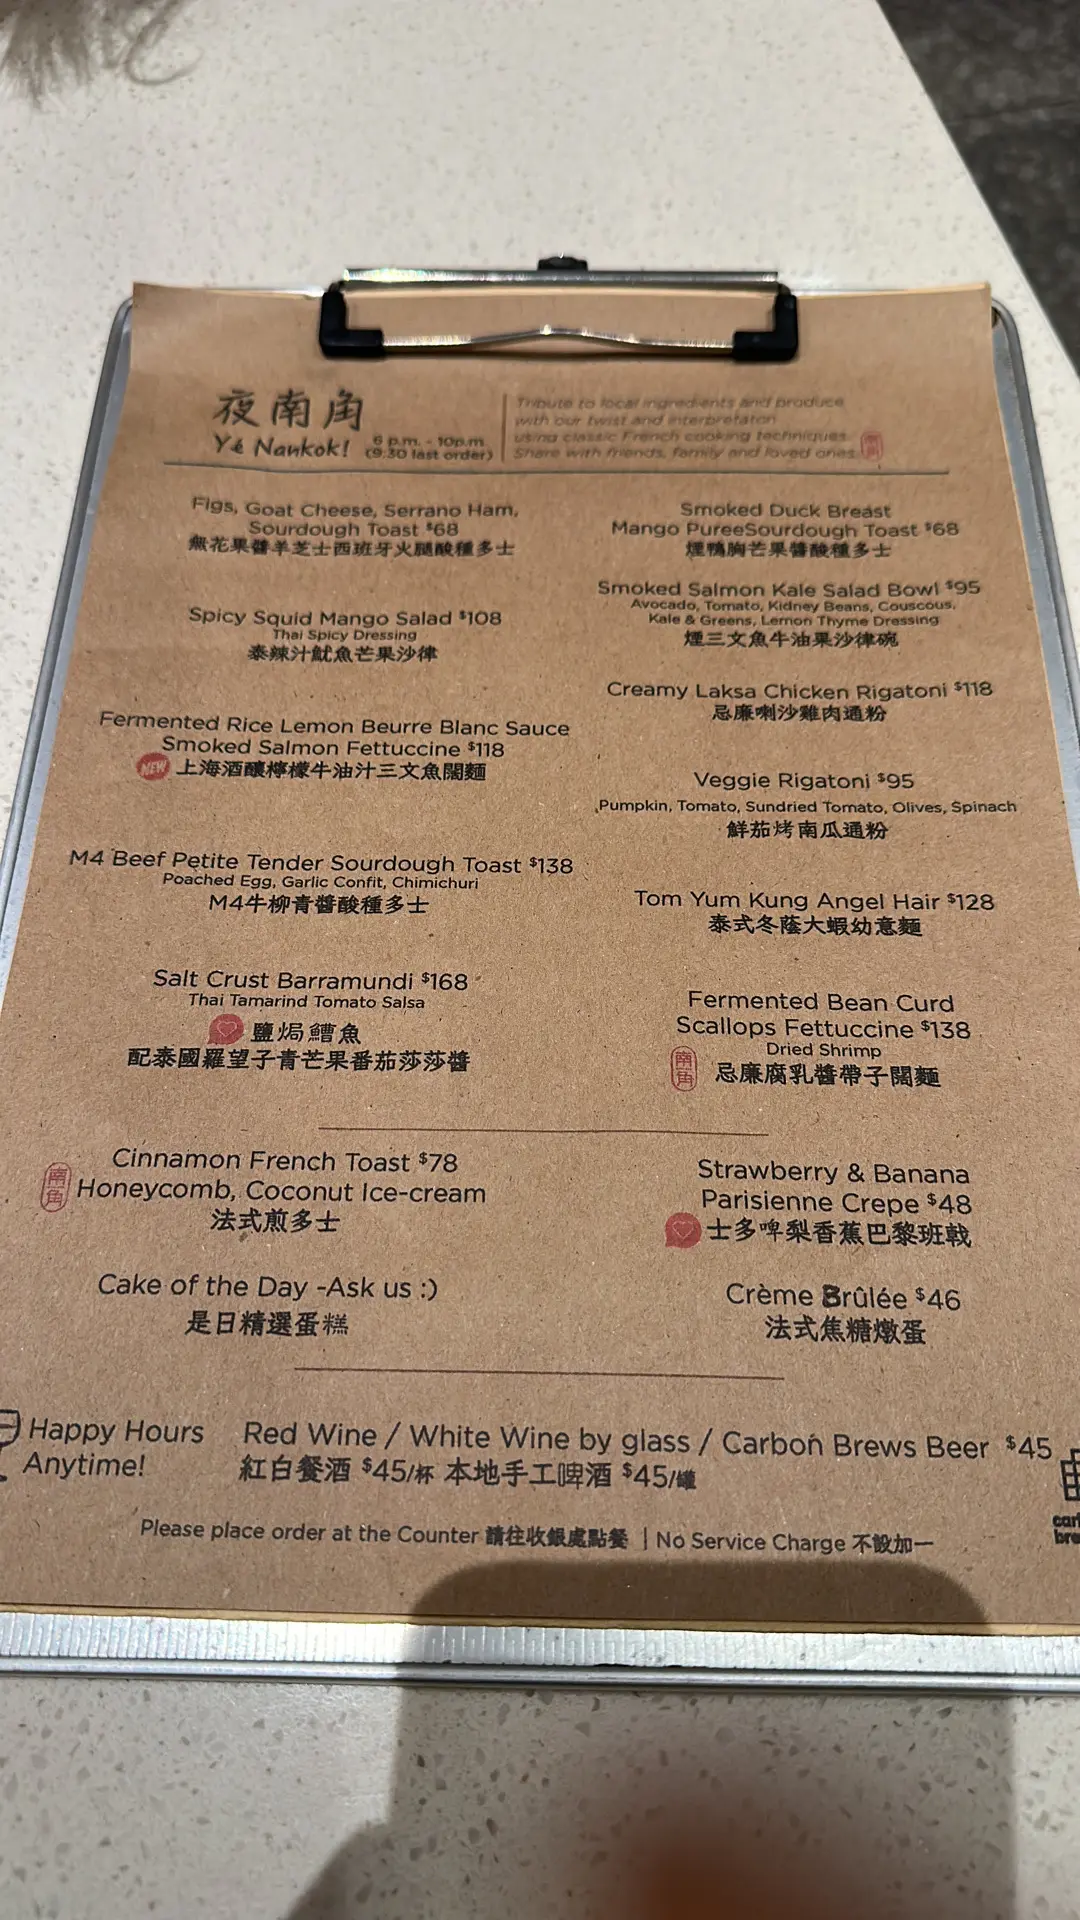 夜南角
Yé Nankok!
6 p.m. - 10p.m.
(9:30 last order)
Tribute to local ingredients and produce
with our twist and interpretation
using classic French cooking techniques.
Share with friends, family and loved ones.
南角
Figs, Goat Cheese, Serrano Ham,
Sourdough Toast $68
無花果醬羊芝士西班牙火腿酸種多士
Smoked Duck Breast
Mango PureeSourdough Toast $68
煙鴨胸芒果醬酸種多士
Spicy Squid Mango Salad $108
Thai Spicy Dressing
泰辣汁魷魚芒果沙律
Smoked Salmon Kale Salad Bowl $95
Avocado, Tomato, Kidney Beans, Couscous,
Kale & Greens, Lemon Thyme Dressing
煙三文魚牛油果沙律碗
Fermented Rice Lemon Beurre Blanc Sauce
Smoked Salmon Fettuccine $118
NEW 上海酒釀檸檬牛油汁三文魚闊麵
Creamy Laksa Chicken Rigatoni $118
忌廉喇沙雞肉通粉
Veggie Rigatoni $95
Pumpkin, Tomato, Sundried Tomato, Olives, Spinach
鮮茄烤南瓜通粉
M4 Beef Petite Tender Sourdough Toast $138
Poached Egg, Garlic Confit, Chimichuri
M4牛柳青醬酸種多士
Tom Yum Kung Angel Hair $128
泰式冬蔭大蝦幼意麵
Salt Crust Barramundi $168
Thai Tamarind Tomato Salsa
鹽焗鰽魚
配泰國羅望子青芒果番茄莎莎醬
Fermented Bean Curd
Scallops Fettuccine $138
Dried Shrimp
南角 忌廉腐乳醬帶子闊麵
Cinnamon French Toast $78
南角 Honeycomb, Coconut Ice-cream
法式煎多士
Strawberry & Banana
Parisienne Crepe $48
士多啤梨香蕉巴黎班戟
Cake of the Day -Ask us :)
是日精選蛋糕
Crème Brûlée $46
法式焦糖燉蛋
Happy Hours
Anytime!
Red Wine / White Wine by glass / Carbon Brews Beer $45
紅白餐酒 $45/杯 本地手工啤酒 $45/罐
Please place order at the Counter 請往收銀處點餐 | No Service Charge 不設加一